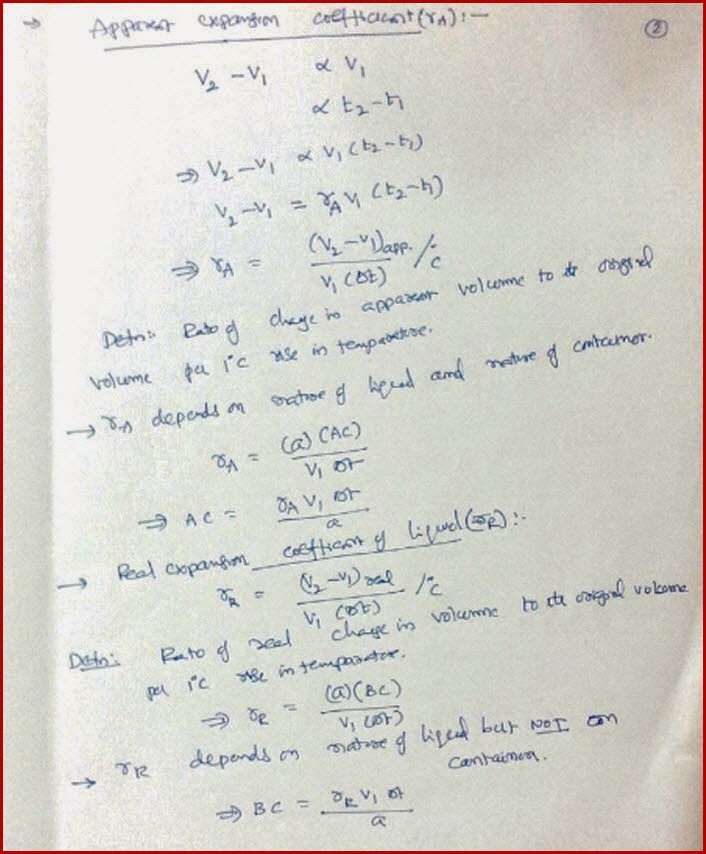 → Apparent expansion coefficient (γA) :—
②
V₂ - V₁ ∝ V₁
∝ t₂ - t₁
⇒ V₂ - V₁ ∝ V₁ (t₂ - t₁)
V₂ - V₁ = γA V₁ (t₂ - t₁)
⇒ γA = (V₂ - V₁)app. / V₁ (Δt) /°C
Defn:: Ratio of change in apparent volume to the original
volume per 1°C rise in temperature.
→ γA depends on nature of liquid and nature of container.
γA = (a) (AC) / V₁ Δt
⇒ AC = γA V₁ Δt / a
→ Real expansion coefficient of liquid (γR) :-
γR = (V₂ - V₁) real / V₁ (Δt) /°C
Defn: Ratio of real change in volume to the original volume
per 1°C rise in temperature.
⇒ γR = (a) (BC) / V₁ (Δt)
→ γR depends on nature of liquid but NOT on
container.
⇒ BC = γR V₁ Δt / a